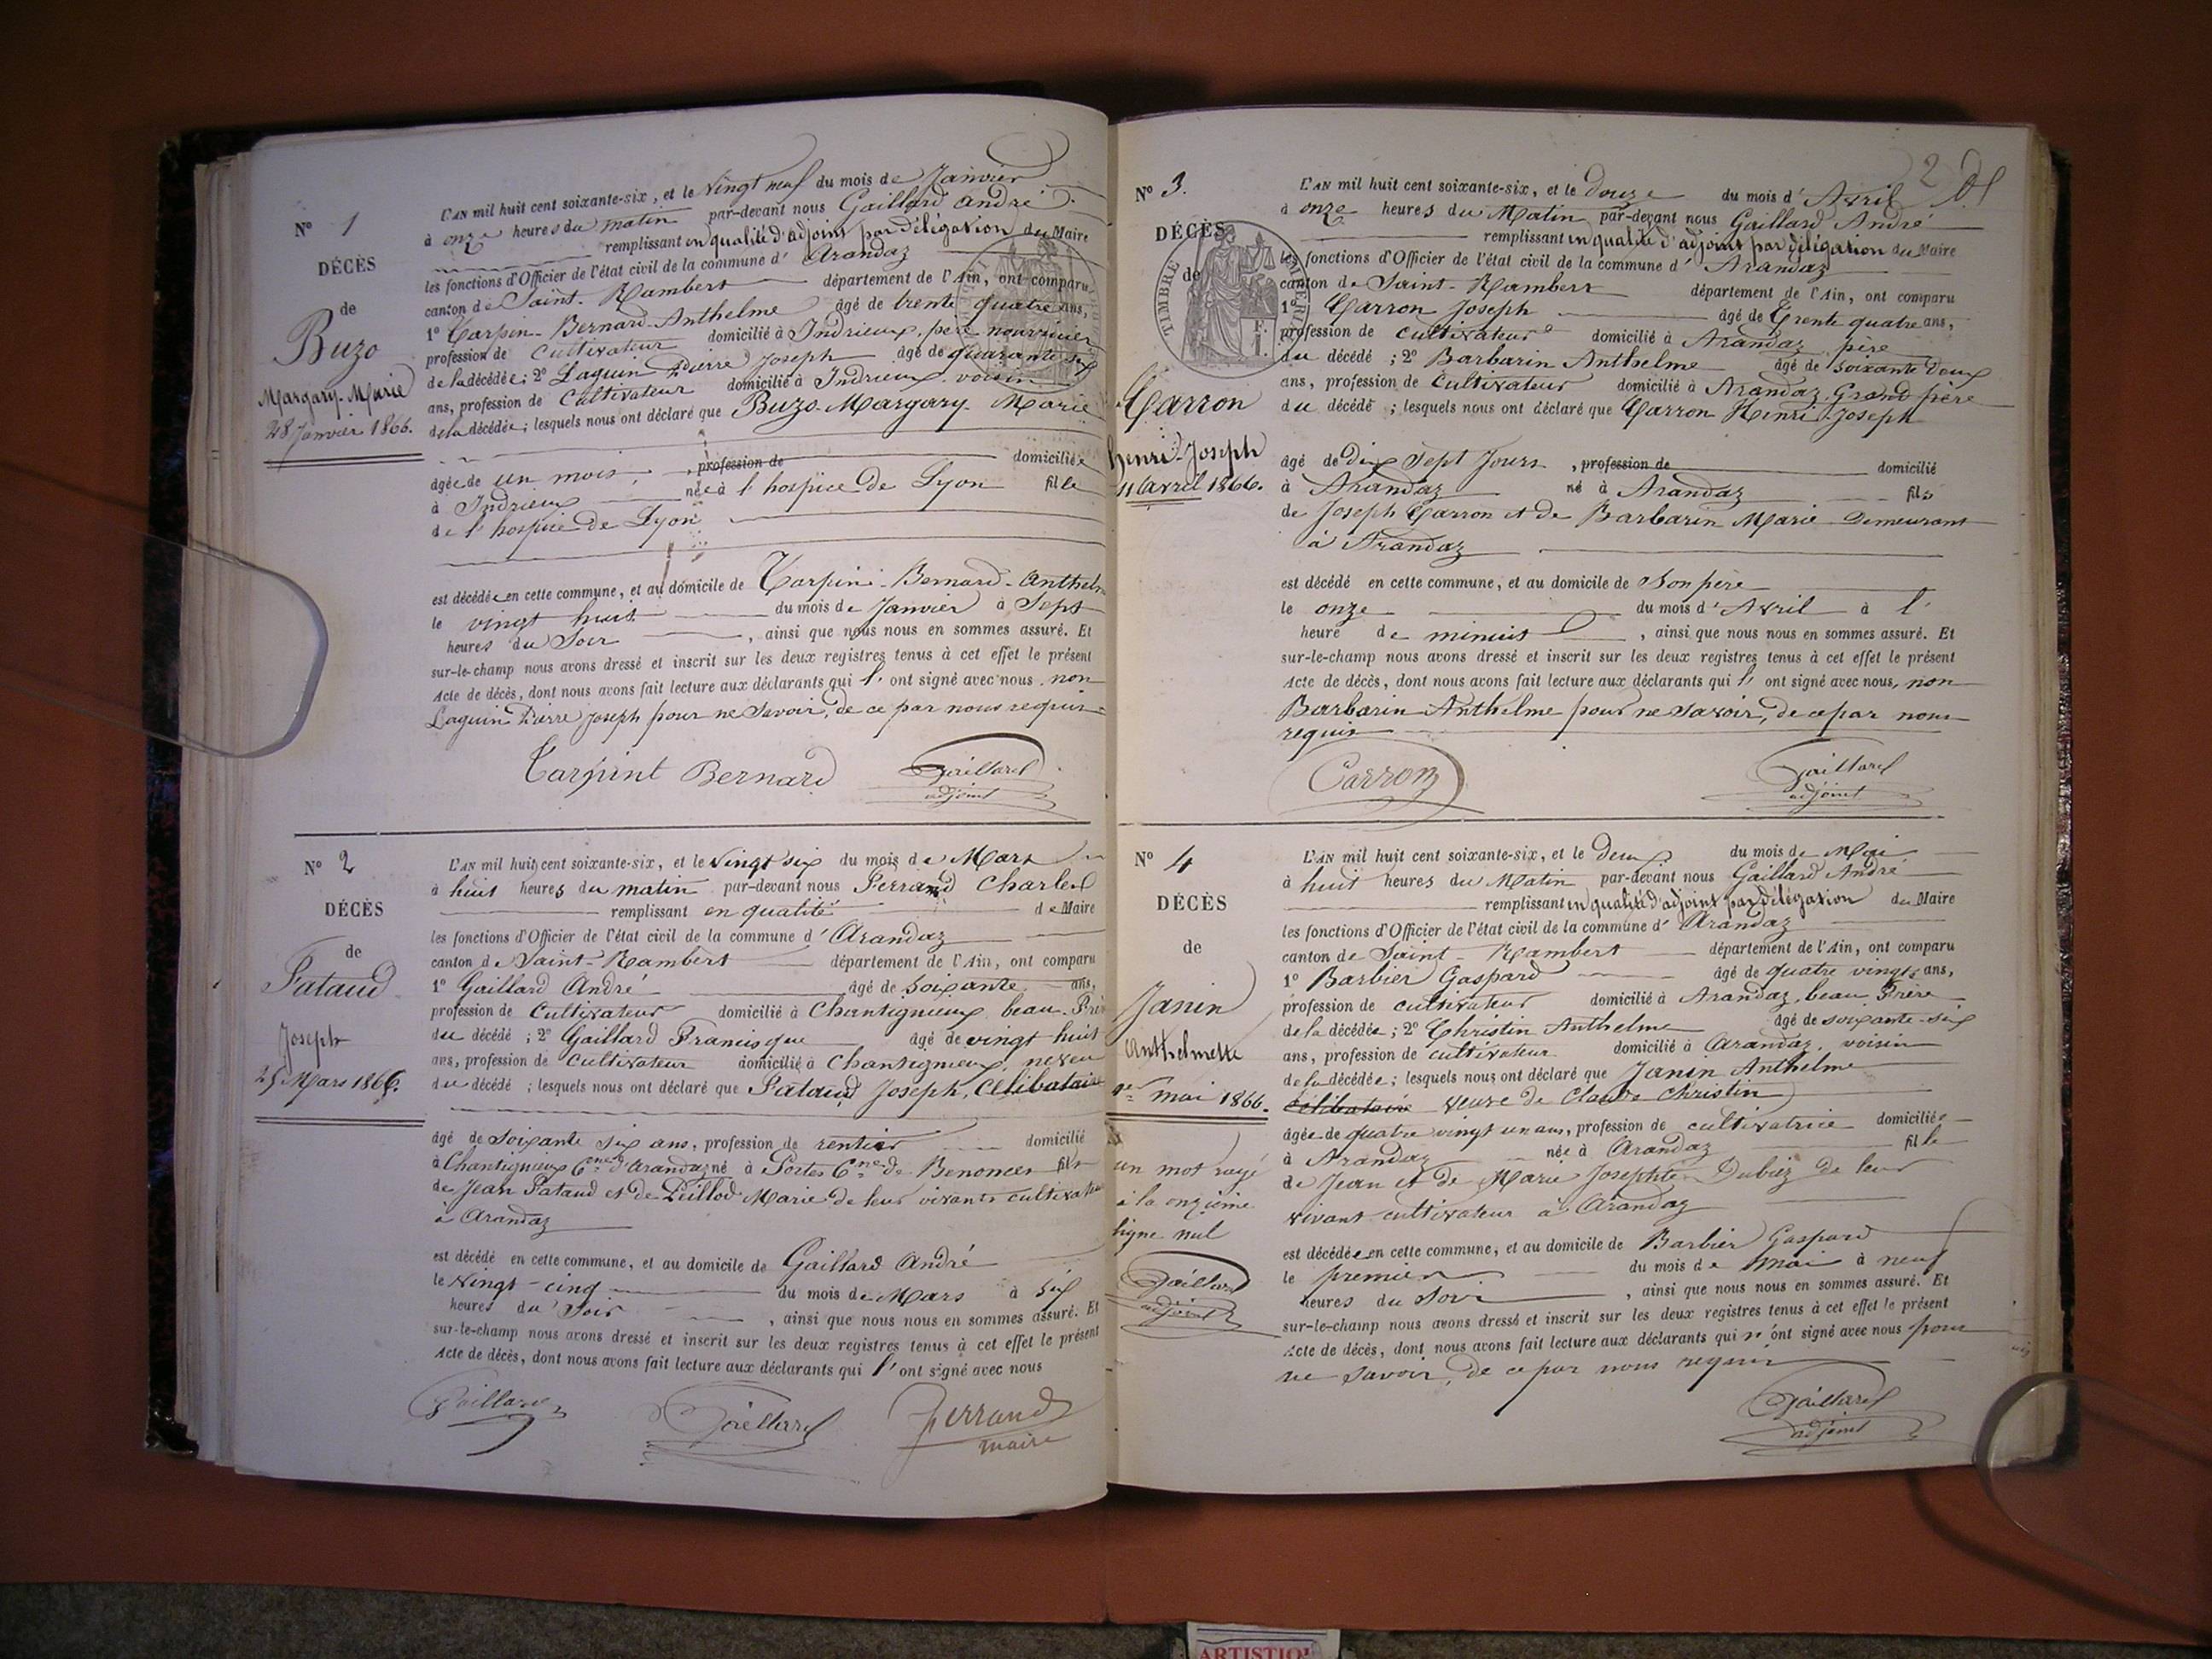 N° 1
DÉCÈS
de
Buzo
Margary-Marie
28 Janvier 1866.
L'AN mil huit cent soixante-six, et le vingt neuf du mois de Janvier
à onze heures du matin par-devant nous Gaillard André
remplissant en qualité d'adjoint par délégation du Maire
les fonctions d'Officier de l'état civil de la commune d' Arandaz
canton de Saint-Rambert département de l'Ain, ont comparu
1° Carpin-Bernard-Anthelme âgé de trente quatre ans,
profession de Cultivateur domicilié à Indrieux, père nourricier
de la décédée; 2° Laguin Pierre Joseph âgé de quarante six
ans, profession de Cultivateur domicilié à Indrieux voisin
de la décédée; lesquels nous ont déclaré que Buzo-Margary-Marie
âgée de un mois, profession de domiciliée
à Indrieux née à l'hospice de Lyon fille
de l'hospice de Lyon
est décédée en cette commune, et au domicile de Carpin-Bernard-Anthelm
le vingt huit du mois de Janvier à Sept
heures du Soir, ainsi que nous nous en sommes assuré. Et
sur-le-champ nous avons dressé et inscrit sur les deux registres tenus à cet effet le présent
Acte de décès, dont nous avons fait lecture aux déclarants qui l'ont signé avec nous, non
Laguin Pierre Joseph pour ne savoir, de ce par nous requis
Carpint Bernard Gaillard
adjoint
N° 2
DÉCÈS
de
Pataud
Joseph
25 Mars 1866.
L'AN mil huit cent soixante-six, et le vingt six du mois de Mars
à huit heures du matin par-devant nous Ferrand Charles
remplissant en qualité de Maire
les fonctions d'Officier de l'état civil de la commune d' Arandaz
canton de Saint-Rambert département de l'Ain, ont comparu
1° Gaillard André âgé de Soixante ans,
profession de Cultivateur domicilié à Chantignieux beau-Frè
du décédé; 2° Gaillard Francisque âgé de vingt huit
ans, profession de Cultivateur domicilié à Chantignieux, neveu
du décédé; lesquels nous ont déclaré que Pataud Joseph, Célibataire
âgé de Soixante six ans, profession de rentier domicilié
à Chantignieux Cne d'Arandaz né à Portes Cne de Benonces fils
de Jean Pataud et de Peillod Marie de leur vivants cultivate
à Arandaz
est décédé en cette commune, et au domicile de Gaillard André
le vingt-cinq du mois de Mars à six
heures du Soir, ainsi que nous nous en sommes assuré. Et
sur-le-champ nous avons dressé et inscrit sur les deux registres tenus à cet effet le présent
Acte de décès, dont nous avons fait lecture aux déclarants qui l'ont signé avec nous
Gaillard Gaillard Ferrand
maire
2
N° 3.
DÉCÈS
de
TIMBRE IMPÉRI
Carron
henri-Joseph
11 Avril 1866.
L'AN mil huit cent soixante-six, et le douze du mois d'Avril
à onze heures du Matin par-devant nous Gaillard André
remplissant en qualité d'adjoint par délégation du Maire
les fonctions d'Officier de l'état civil de la commune d' Arandaz
canton de Saint-Rambert département de l'Ain, ont comparu
1° Carron Joseph âgé de trente quatre ans,
profession de cultivateur domicilié à Arandaz père
du décédé; 2° Barbarin Anthelme âgé de soixante Deux
ans, profession de Cultivateur domicilié à Arandaz Grand père
du décédé; lesquels nous ont déclaré que Carron Henri Joseph
âgé de dix Sept Jours, profession de domicilié
à Arandaz né à Arandaz fils
de Joseph Carron et de Barbarin Marie Demeurant
à Arandaz
est décédé en cette commune, et au domicile de Son père
le onze du mois d'Avril à l'
heure de minuit, ainsi que nous nous en sommes assuré. Et
sur-le-champ nous avons dressé et inscrit sur les deux registres tenus à cet effet le présent
Acte de décès, dont nous avons fait lecture aux déclarants qui l'ont signé avec nous, non
Barbarin Anthelme pour ne savoir, de ce par nous
requis
Carron Gaillard
adjoint
N° 4
DÉCÈS
de
Janin
Anthelmette
1er mai 1866.
un mot rayé
à la onzième
ligne nul
Gaillard
adjoint
L'AN mil huit cent soixante-six, et le deux du mois de Mai
à huit heures du Matin par-devant nous Gaillard André
remplissant en qualité d'adjoint par délégation du Maire
les fonctions d'Officier de l'état civil de la commune d' Arandaz
canton de Saint-Rambert département de l'Ain, ont comparu
1° Barbier Gaspard âgé de quatre vingts ans,
profession de cultivateur domicilié à Arandaz, beau Frère
de la décédée; 2° Christin Anthelme âgé de soixante-six
ans, profession de cultivateur domicilié à Arandaz, voisin
de la décédée; lesquels nous ont déclaré que Janin Anthelme
célibataire veuve de Claude Christin
âgée de quatre vingt un ans, profession de cultivatrice domiciliée
à Arandaz née à Arandaz fille
de Jean et de Marie Josephte Dubiez de leur
vivant cultivateur à Arandaz
est décédée en cette commune, et au domicile de Barbier Gaspard
le premier du mois de Mai à neuf
heures du Soir, ainsi que nous nous en sommes assuré. Et
sur-le-champ nous avons dressé et inscrit sur les deux registres tenus à cet effet le présent
Acte de décès, dont nous avons fait lecture aux déclarants qui n'ont signé avec nous pour
ne savoir, de ce par nous requis
Gaillard
adjoint